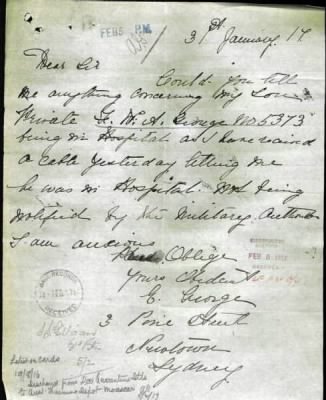 FEB 5 P.M.
31st January 17.
Dear Sir
Could you tell
me anything concerning my son
Private F. W. A. George No 5373
being in Hospital as I have received
a cable yesterday telling me
he was in Hospital. Not being
notified by the Military Authori
I am anxious
And Oblige
Yours Obedient
E. George
3 Pine Street
Newtown
Sydney
FEB 5 191
RECORDS
RECEIVED
5/2
Letter on cards
10/8/16